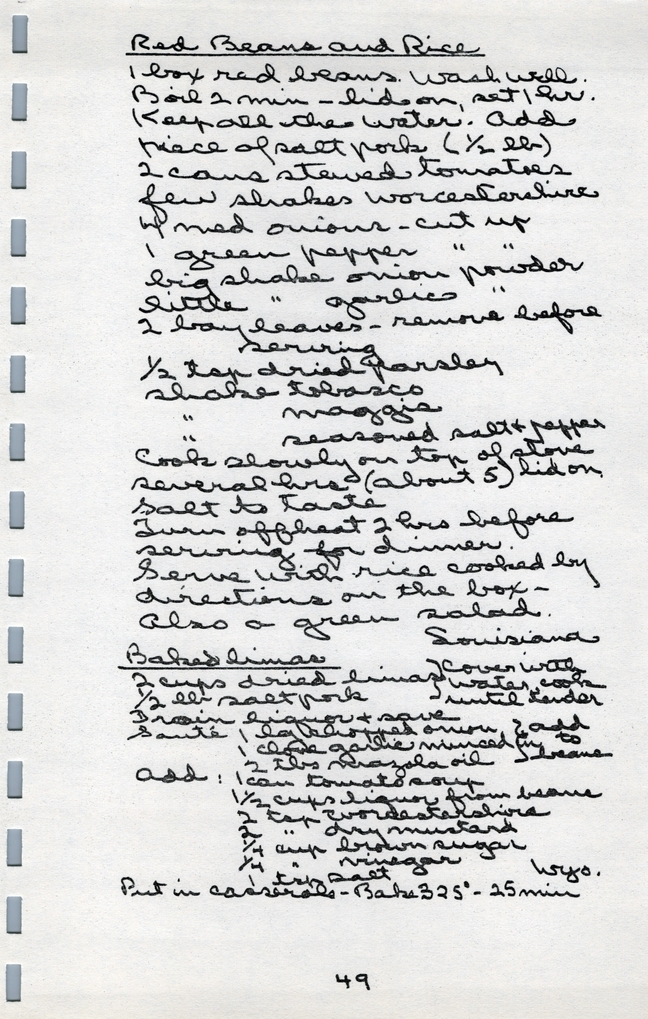 Red Beans and Rice
1 box red beans. Wash well.
Boil 2 min - lid on, set 1 hr.
Keep all the water. Add
piece of salt pork (1/2 lb)
2 cans stewed tomatoes
few shakes worcestershire
4 med onions - cut up
1 green pepper " "
big shake onion powder
little " garlic "
2 bay leaves - remove before
serving
1/2 tsp dried parsley
shake tobasco
" maggie
" seasoned salt + pepper
Cook slowly on top of stove
several hrs (about 5) lid on.
Salt to taste
Turn off heat 2 hrs before
serving for dinner.
Serve with rice cooked by
directions on the box -
Also a green salad.
Louisiana
Baked limas
2 cups dried limas } Cover with
1/2 lb salt pork } water, cook
until tender
Drain liquor + save
Sauté 1 lg chopped onion } add
1 clove garlic minced in } to
2 tbs mazola oil } beans
Add: 1 can tomato soup
1 1/2 cups liquor from beans
2 tsp worcestershire
2 " dry mustard
1/4 cup brown sugar
1/4 " vinegar
1 tsp salt Wyo.
Put in casserole - Bake 325° - 25 min
49